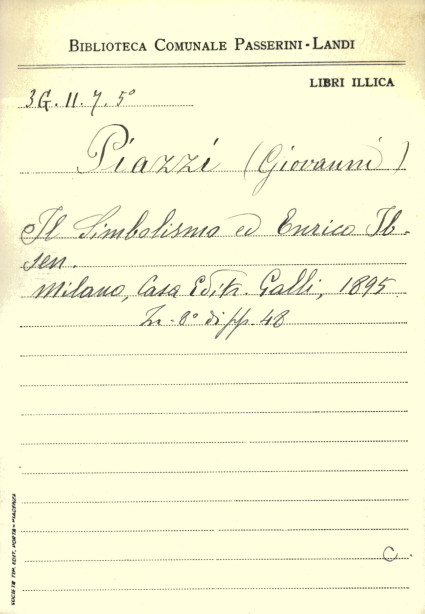 BIBLIOTECA COMUNALE PASSERINI-LANDI
LIBRI ILLICA
3G. II. 7. 5°
Piazzi (Giovanni)
Il Simbolismo ed Enrico Ib-
sen.
Milano, Casa Editr. Galli, 1895
In-8° di pp. 48
C